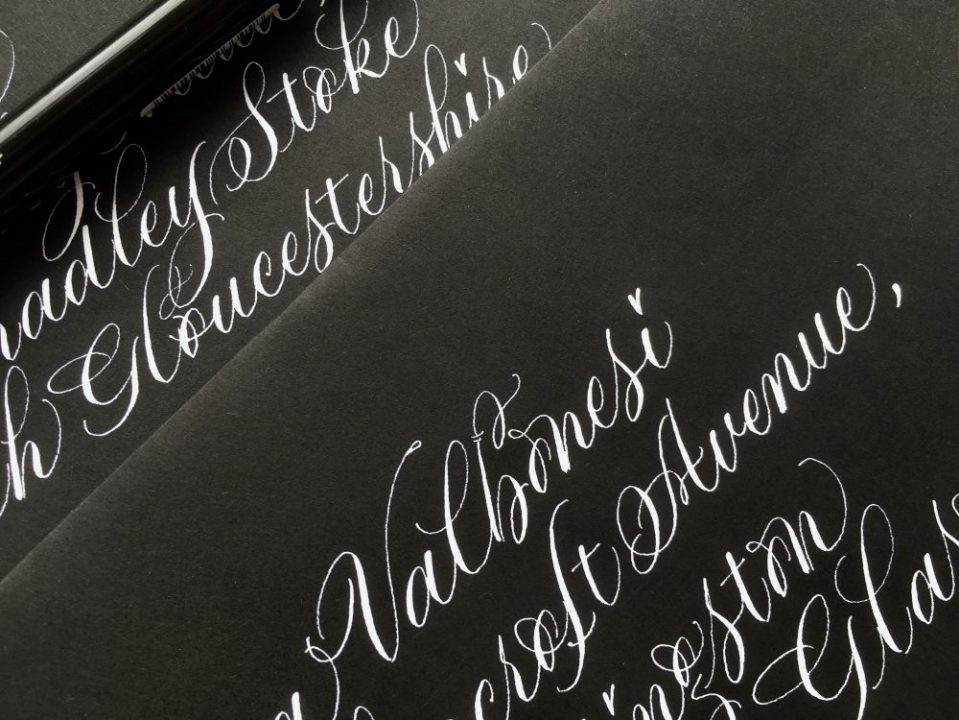 radley Stoke
h Gloucestershire
a Valbonesi
croft Avenue,
ingston
Glas